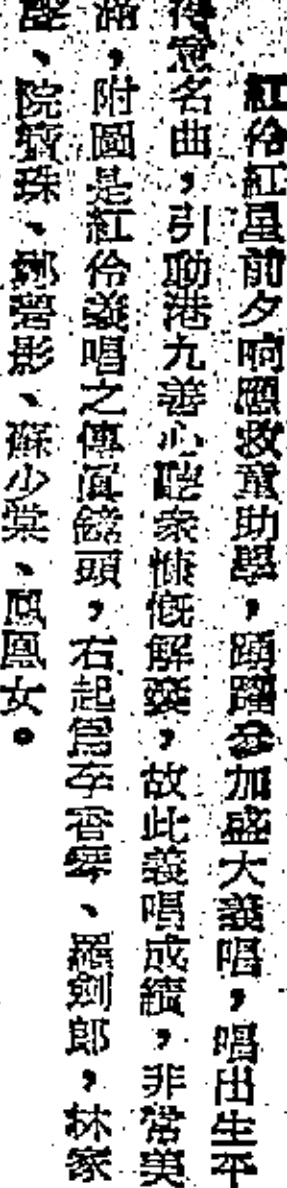 紅伶紅星前夕响應救童助學，踴躍參加盛大義唱，唱出生平
得意名曲，引動港九善心聽衆慷慨解囊，故此義唱成績，非常美
滿，附圖是紅伶義唱之傳眞鏡頭，右起爲李香琴、羅劍郎，林家
聲、阮寶珠、鄭碧影、蘇少棠、鳳凰女。